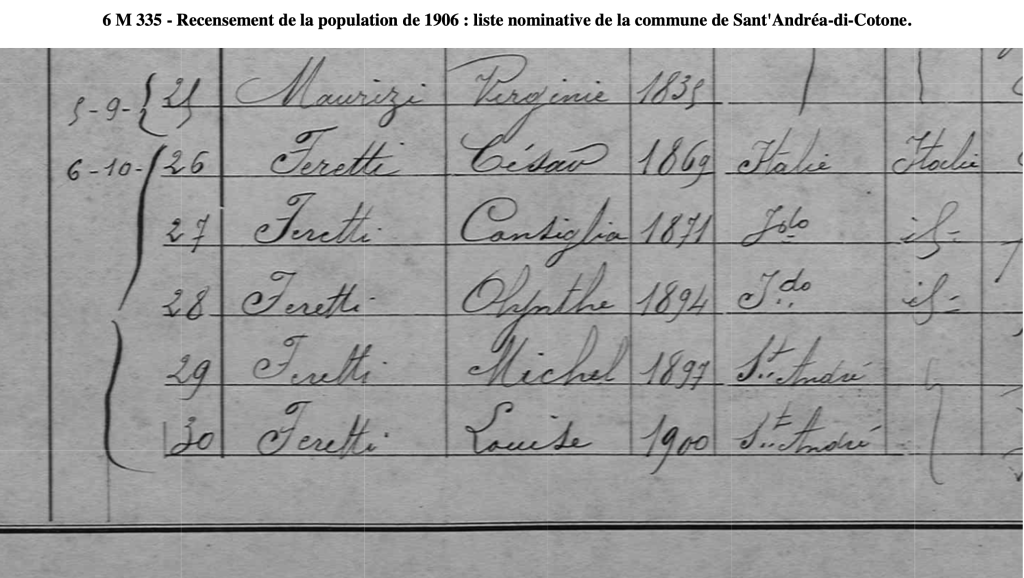 6 M 335 - Recensement de la population de 1906 : liste nominative de la commune de Sant'Andréa-di-Cotone.
5-9- 25 Maurizi Virginie 1835
6-10- 26 Feretti César 1869 Italie Italie
27 Feretti Consiglia 1871 Ido id-
28 Feretti Olynthe 1894 Ido id-
29 Feretti Michel 1897 St. André
30 Feretti Louise 1900 St. André